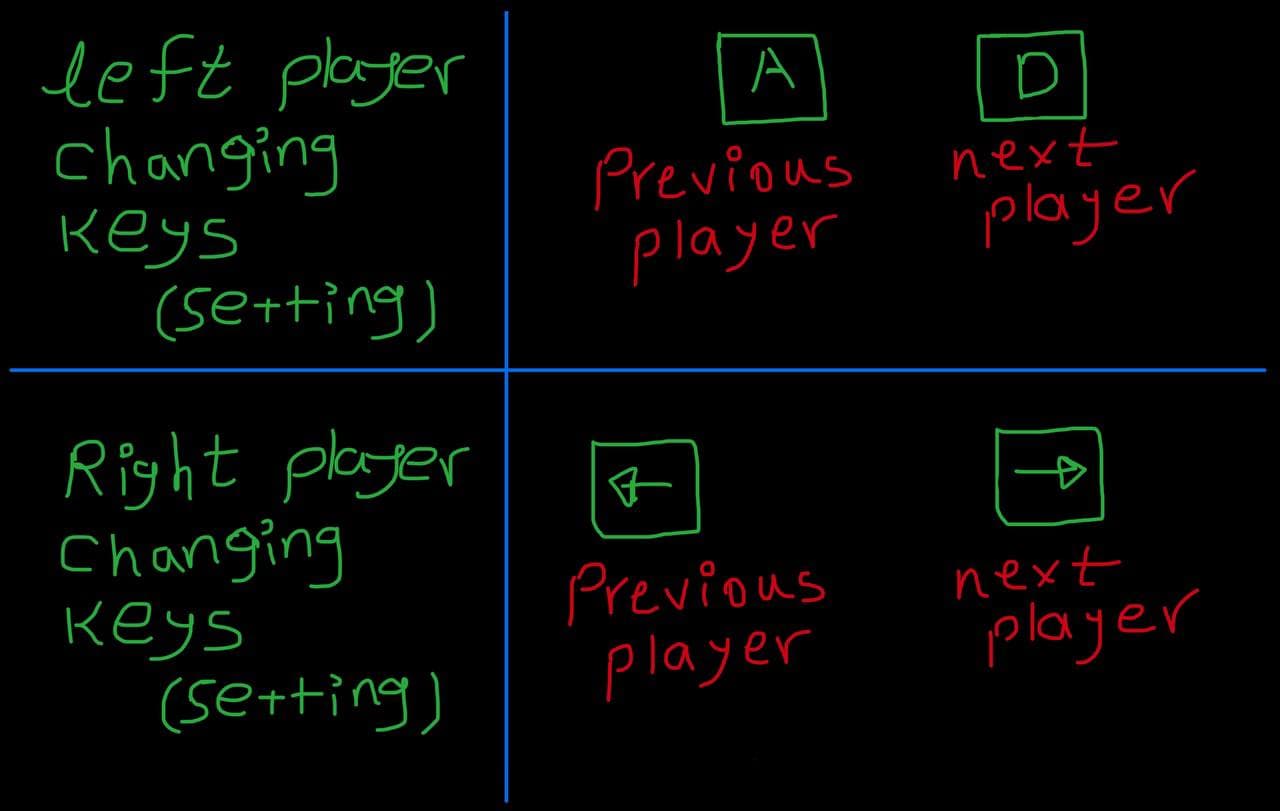 left player
changing
keys
(setting)
A
Previous
player
D
next
player
Right player
changing
keys
(setting)
←
Previous
player
→
next
player